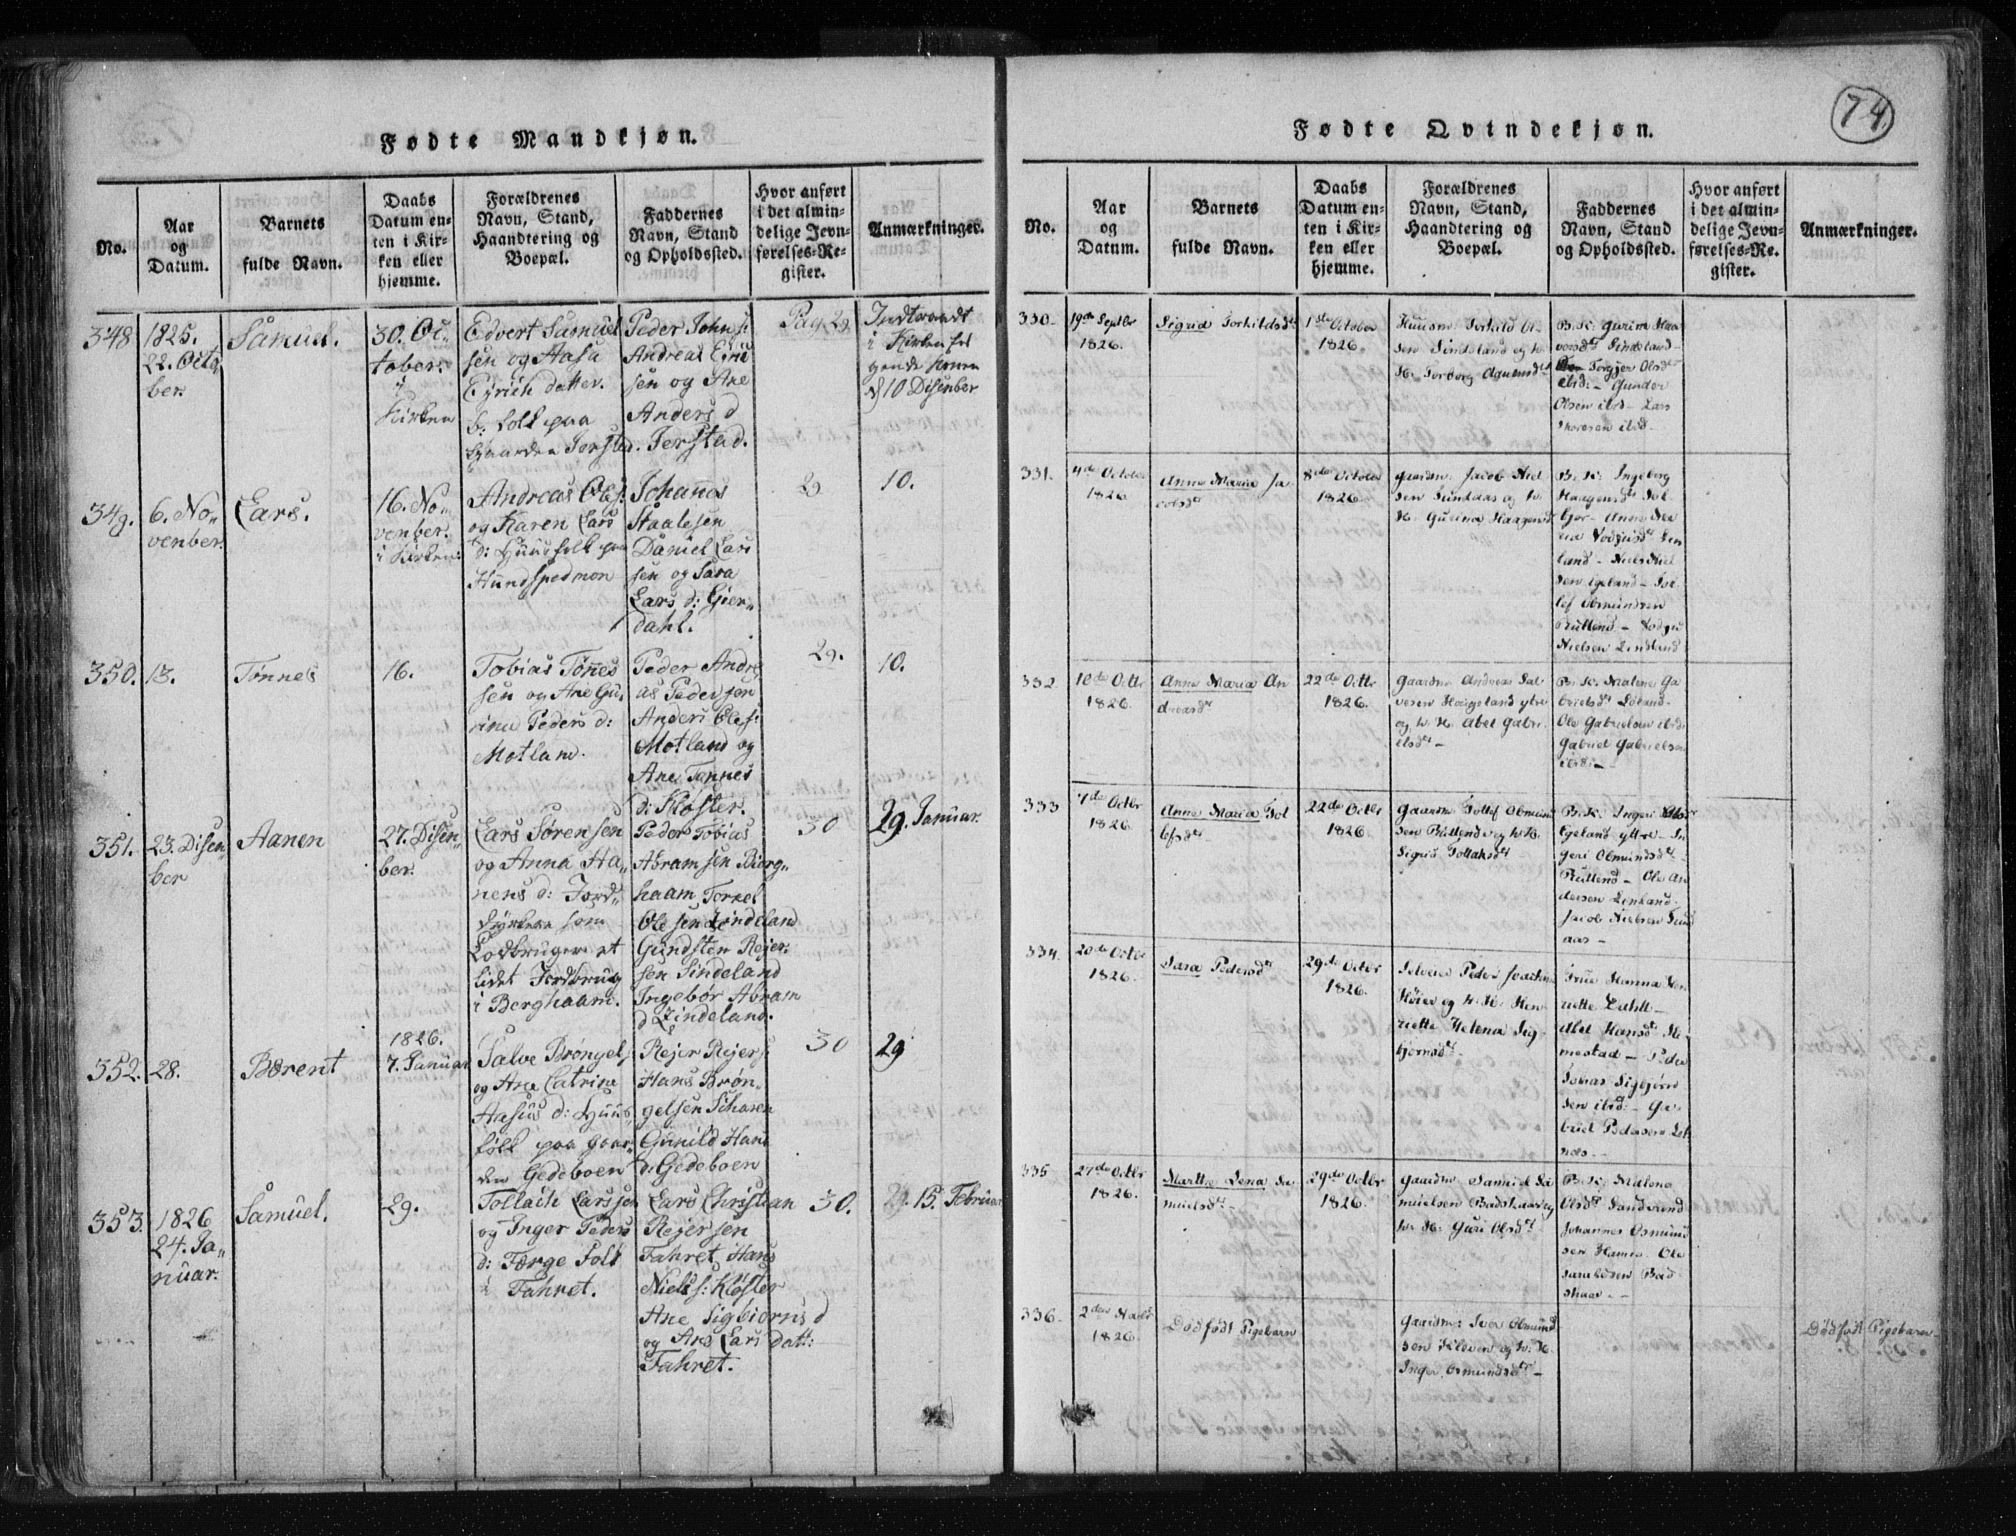 74.
Fødte Mandkjøn.
No.
Aar
og
Datum.
Barnets
fulde Navn.
Daabs
Datum en-
ten i Kir-
ken eller
hjemme.
Forældrenes
Navn, Stand,
Haandtering og
Boepæl.
Faddernes
Navn, Stand
og Opholdssted.
Hvor anført
i det almin-
delige Jevn-
førelses-Re-
gister.
Anmærkninger.
348
1825.
22. Octo
ber.
Samuel.
30. Oc-
tober.
i
Kirken
Edvert Samuel
sen og Aasa
Eyrich datter.
b: folk paa
Gaarden Jerstad.
Peder John s:
Andreas Eyri
sen og Ane
Anders d
Jerstad.
Pag 29
i Kirken fol
gende
d 10 Disenber
349.
6. No-
venber.
Lars.
16. No-
venber.
i Kirken.
Andreas Oles:
og Karen Lars
d: Huusfolk paa
Hundspedmon
Johanes
Staalesen
Daniel Lars
sen og Sara
Lars d: Gier-
dahl.
29
10.
350.
13.
Tønnes
16.
Tobias Tønes
sen og Ane Gu-
rine Peders d:
Motland.
Peder Andre
as Pedersen
Anders Oles:
Motland og
Ane Tønnes
d: Kloster.
29.
10.
351.
23. Disen-
ber
Aanen
27. Disen-
ber.
Lars Sørensen
og Anna Aa-
nens d: Jord-
dyrkere som
Lodbrugere et
lidet Jordbrug
i Berghaam.
Peder Tobias
Abramsen Bierg-
haam Torkel
Olesen Lindeland
Gundsten Rejer:
sen Sindeland
Ingebor Abram
d Lindeland.
30
29. Januar.
352.
28.
Bærent
1826.
7. Januar
Salve Brøngels
og Ane Catrine
Aasus d: Huus
folk paa gaar-
den Gedeboen
Rejer Rejers:
Hans Brøn-
gelsen
Gunild Hans
d: Gedeboen
30
29
353.
1826
24. Ja-
nuar.
Samuel.
29.
Tollach Larssen
og Inger Peders
d: Færge Folk
i Fahret.
Lars Christian
Rejersen
Fahret Hans
Niels s: Kloster
Ane Sigbiørns d
og Ane Lars Datt:
Fahret.
30.
15. Februar
Fødte Qvindekjøn.
No.
Aar
og
Datum.
Barnets
fulde Navn.
Daabs
Datum en-
ten i Kir-
ken eller
hjemme.
Forældrenes
Navn, Stand,
Haandtering og
Boepæl.
Faddernes
Navn, Stand
og Opholdssted.
Hvor anført
i det almin-
delige Jevn-
førelses-Re-
gister.
Anmærkninger.
330.
19de Septbr
1826.
Sigrid Torkildsdt
1ste October
1826.
Huusm Torkild Ol-
sen Sindeland og h.
K: Torborg Aanensdt
Gurine Haa
vorsdt Sindeland
Torgjer Olsdt
ibid: - Gunder
Olsen ibid - Lars
Thoresen ibid -
331.
4de October
1826
Anne Maria Ja-
cobsdt
8de October
1826.
Gaardm: Jacob Niel
sen Sundaas og h.
K. Gurine Haagensdt
B. K: Ingeborg
Haagensdt
Anne Ma
ria
land - Niels Niel
sen Egeland - Tol
lef Osmundsen
Rullend -
Nielsen Lindland
332
10de Octbr
1826.
Anne Maria An
dreasdt
22de Octbr
1826.
Gaardm Andreas Sal
vesen Haugeland ytre
og h. K. Abel Gabri-
elsdt -
B. K: Malene Ga
brielsdt
Ole Gabrielsen ibid:
Gabriel Gabrielsen
ibid: -
333
7de Octbr
1826.
Anne Maria Tol
lefsdt
22de Octbr
1826.
Gaardm Tollef Osmun
sen Rullend og h. K.
Sigrid Tollaksdt
B. K: Ingeri
Egeland yttre - In
geri Osmundsdt
Rullend - Ole An
dersen Lindland.
Jacob Nielsen Sund
aas -
334.
20de Octbr
1826.
Sara Pedersdt
29de Octbr
1826.
Peder Joachim
Høier og h. K: Hen-
riette Helena Sig-
bjørnsdt -
Frue Hanna Hen
riette
Abel Hansdt
mestad - Peder
Tobias Sigbjørn
sen ibid: - Ga-
briel Pedersen
335
27de Octbr
1826.
Marthe Lena Sa
muelsdt
29de Octbr
1826.
Gaardm Samuel Sa
muelsen Badskaar og
h. K: Guri Olsdt
B. K: Malene
Olsdt
Johannes Osmund
sen Ole
336.
2den
1826.
Dødfødt Pigebarn
Gaardm: Iver Osmund
sen Kleven og h. K.
Inger Osmundsdt -
Dødfødt Pigebarn